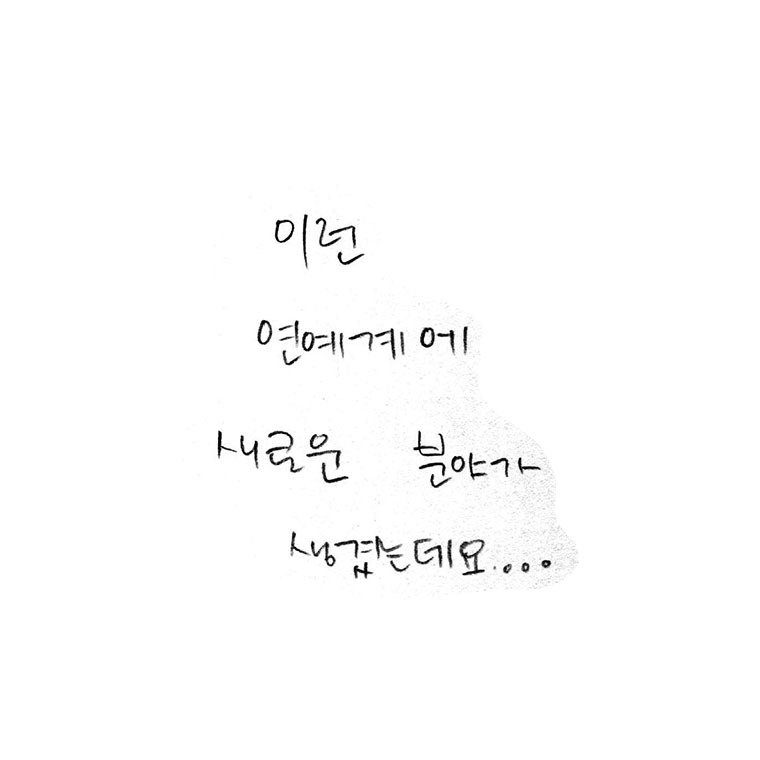 이런
연예계에
새로운 분야가
생겼는데요....